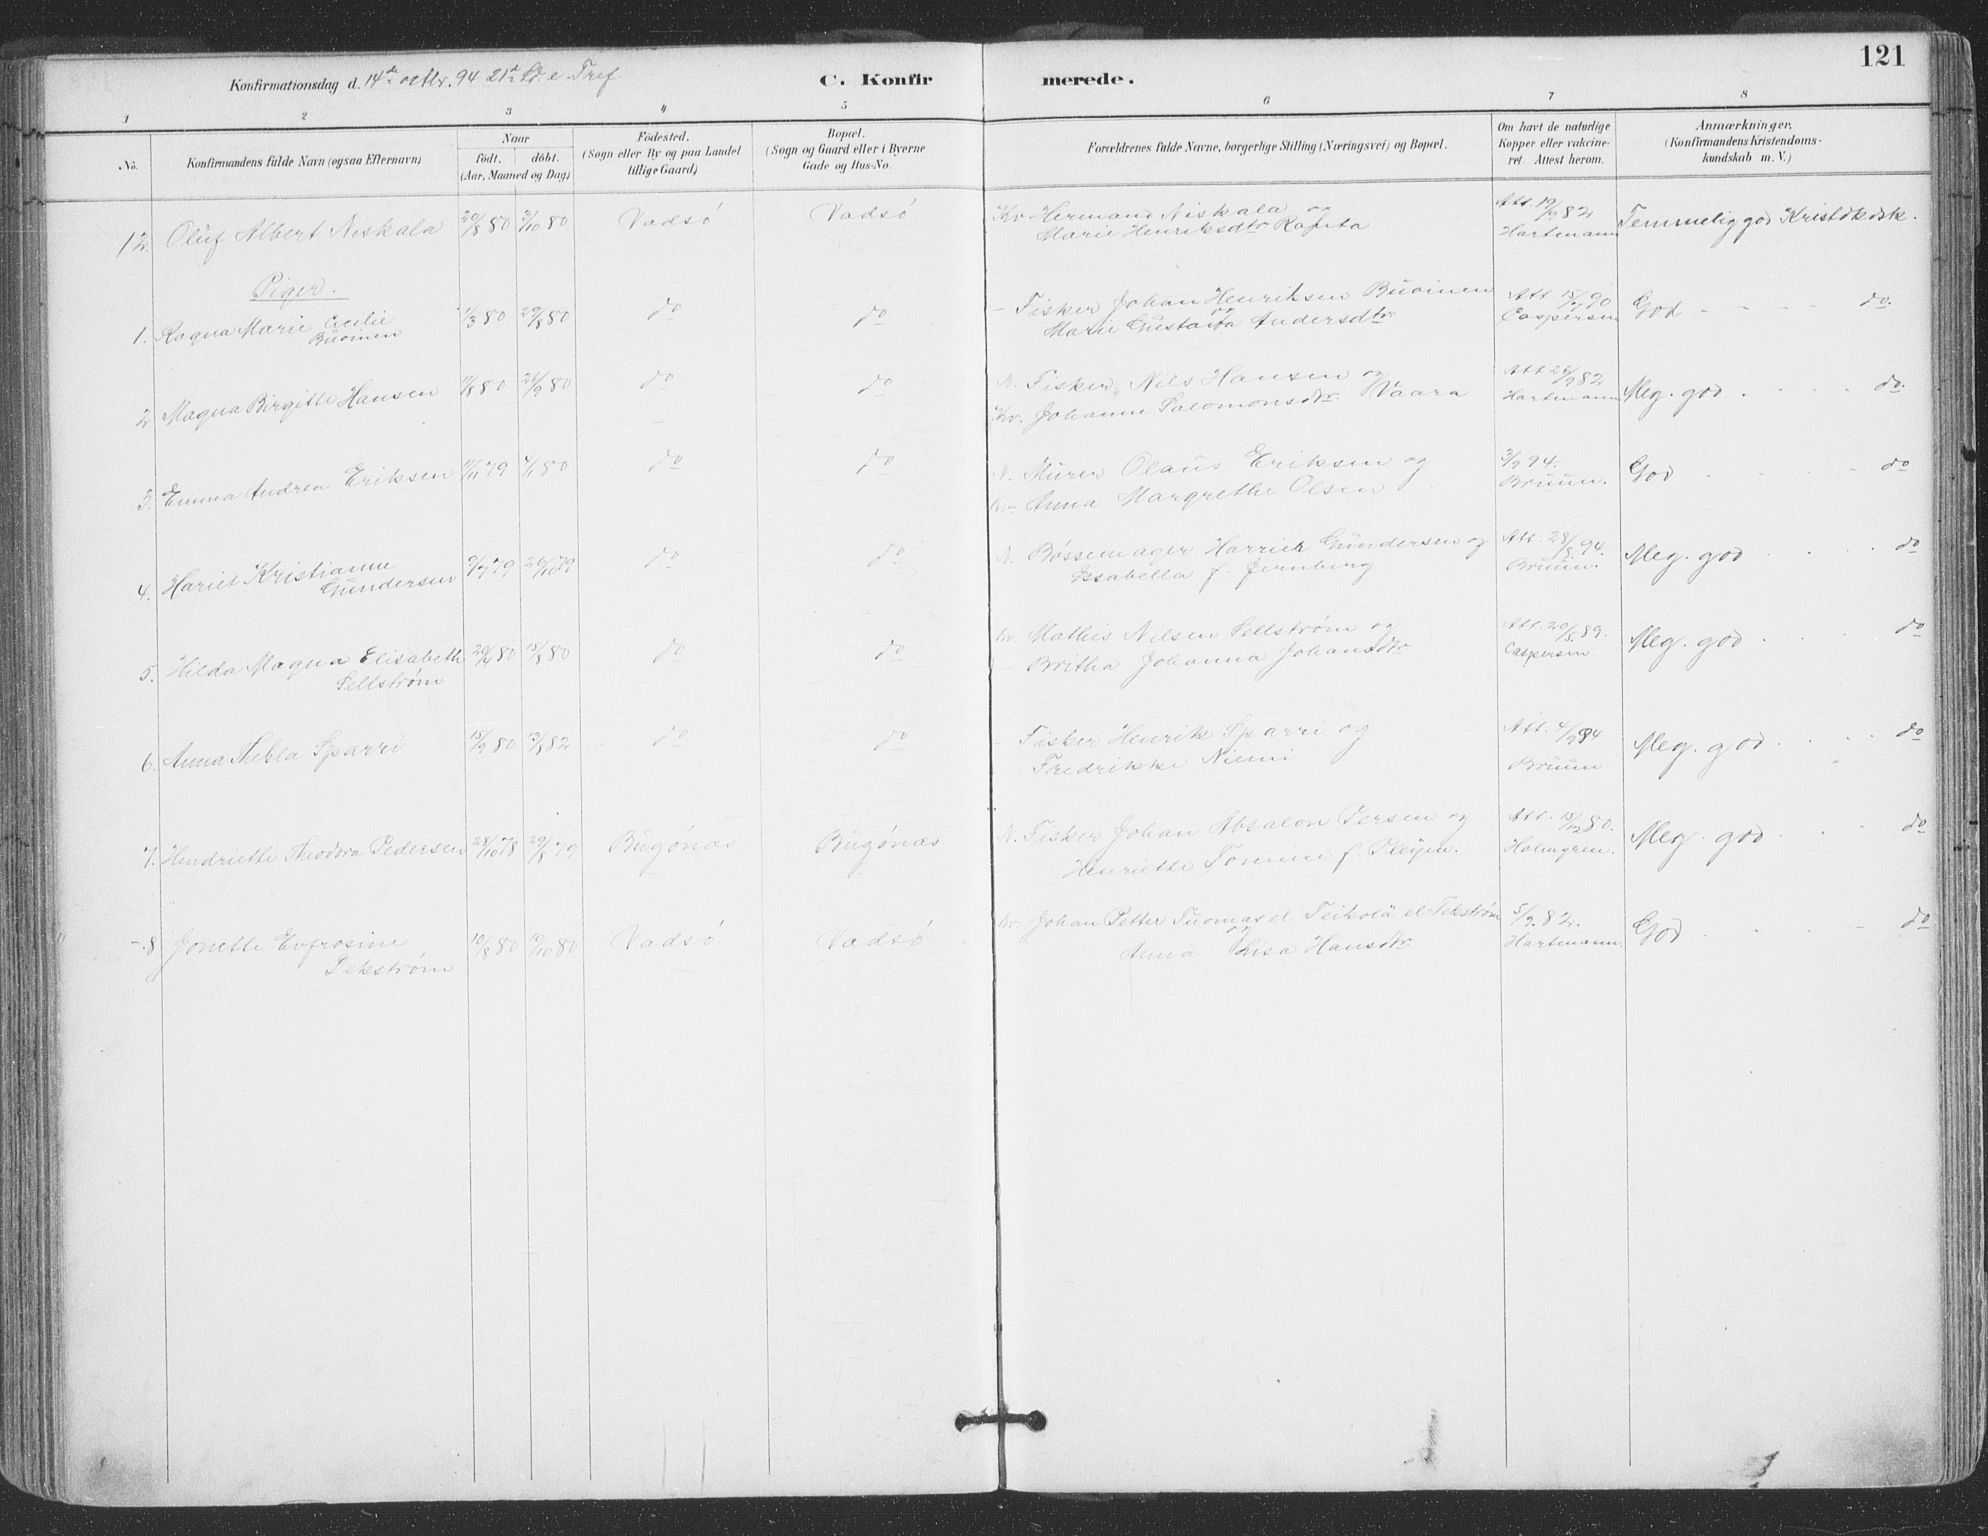 121
Konfirmationsdag d. 14de octbr. 94 21de S. e. Tref.
C. Konfirmerede.
1 2 3 4 5 6 7 8
No. Konfirmandens fulde Navn (ogsaa Efternavn)
Naar født. døbt. (Aar, Maaned og Dag)
Fødested. (Sogn eller By og paa Landet tillige Gaard)
Bopæl. (Sogn og Gaard eller i Byerne Gade og Hus-No.
Forældrenes fulde Navne, borgerlige Stilling (Næringsvei) og Bopæl.
Om havt de naturlige Kopper eller vakcineret. Attest herom.
Anmærkninger. (Konfirmandens Kristendomskundskab m. V.)
12. Oluf Albert Niskala 20/8 80 3/10 80 Vadsö Vadsö Kv Hermand Niskala og Att. 19/9 82 Temmelig god Kristdkdsk.
Marie Henriksdtr Hartmann
Piger.
1. Ragna Marie Cecilie 1/3 80 29/8 80 do do - Fisker Johan Henriksen Buoinen Att. 15/7 90 God - - - do.
Buoinen og Marie Gustava Andersdtr Caspersen
2 Magna Birgitte Hansen 11/8 80 26/9 80 do do N. Fisker Nils Hansen og Att 26/9 82 Meg. god . . . do.
Kv. Johanne Salomonsdtr. Vaara Hartmann
3. Emma Andrea Eriksen 11/11 79 4/1 80 do do N. Murer Olaus Eriksen og 3/9 94. God . . . do
Kv. Anna Margrethe Olsen Bruun.
4. Hariet Kristianne 9/7 79 26/10 79 do do N. Bøssemager Harriet Gundersen og Att. 28/8 94. Meg. god . . . do
Gundersen Issabella f. Jernberg Bruun.
5. Hilda Magna Elisabeth 20/4 80 15/8 80 do do Kv Mathis Nilsen Sellstrøm og Att. 20/5 89. Meg. god . . . do
Sellstrøm - Britha Johanna Johansdtr Caspersen.
6. Anna Thekla Sparri 15/2 80 13/8 82 do do - Fisker Henrik Sparri og Att. 4/9 94 Meg. god . . . do
Fredrikke Niemi Bruun
7. Hendriette Theodora Pedersen 28/10 78 29/8 79 Bugönæs Bugönæs N. Fisker Johan Absalon Persen og Att. 15/12 80. Meg. god . . . do
Henriette f. Holmgren.
8 Jonette Evfrosine 10/8 80 10/10 80 Vadsö Vadsö Kv. Johan Petter Tuomas el Teikolä el Tekstrøm 5/9 82. God . . . do
Tekstrøm og Anna Lisa Hansdtr Hartmann.